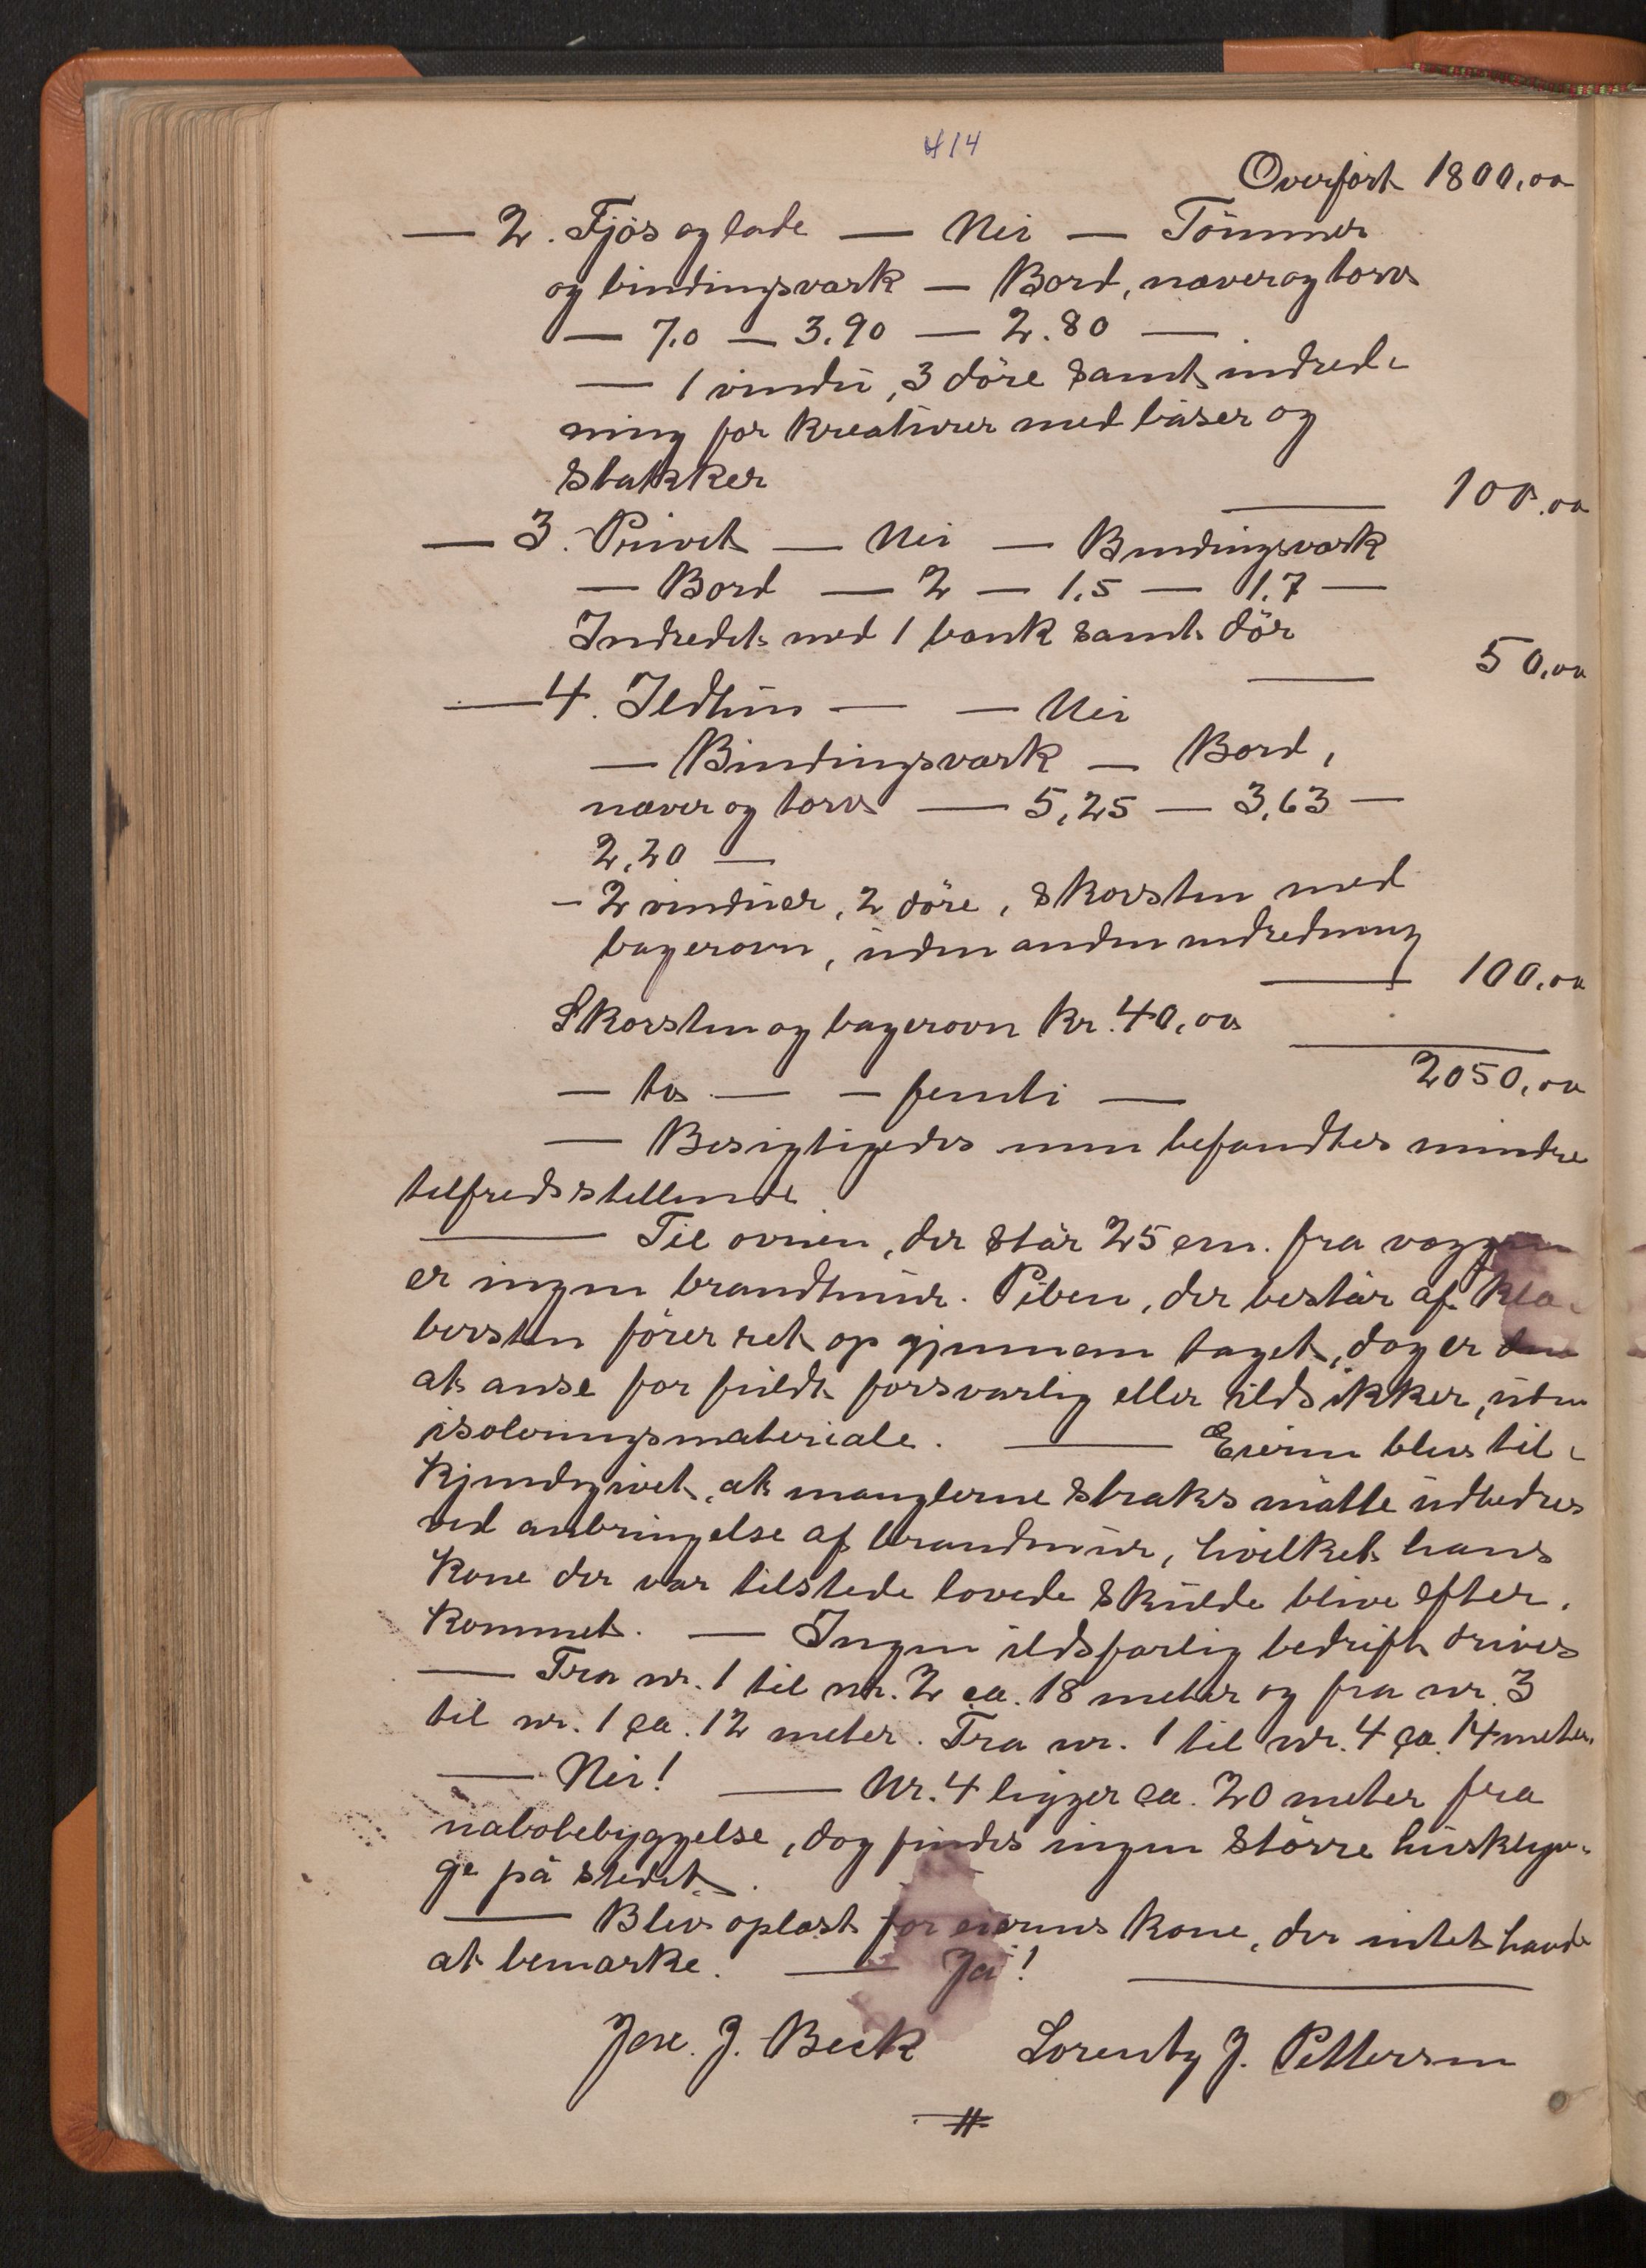 414
Overført 1800,00
— 2. Fjös og lade — Nei — Tömmer
og bindingsværk — Bord, næver og torv
— 7.0 — 3.90 — 2.80 —
— 1 vindu, 3 döre samt indred-
ning for kreaturer med båser og
stakker
—— 100,00
— 3. Privet — Nei — Bindingsværk
— Bord — 2 — 1,5 — 1,7 —
Indredet med 1 bænk samt dör
—— 50,00
— 4. Ildhus — — Nei
— Bindingsværk — Bord,
næver og torv — 5,25 — 3,63 —
2,20 —
— 2 vinduer, 2 döre, skorsten med
bagerovn, uden anden indredning
—— 100,00
Skorsten og bagerovn kr. 40,00
2050,00
— to — — femti —
— Besigtigedes men befandtes mindre
tilfredsstillende
—— Til ovnen, der står 25 cm. fra væggen
er ingen brandmur. Piben, der består af kle-
bersten förer ret op gjennem taget, dog er den
at anse for fuldt forsvarlig eller ildsikker, uten
isoleringsmateriale. —— Eieren blev til-
kjendegivet, at manglerne straks måtte udbedres
ved anbringelse af brandmur, hvilket hans
kone der var tilstede lovede skulde blive efter-
kommet. — Ingen ildsfarlig bedrift drives
—— Fra nr. 1 til nr. 2 ca. 18 meter og fra nr. 3
til nr. 1 ca. 12 meter. Fra nr. 1 til nr. 4 ca. 14 meter.
—— Nei! —— Nr. 4 ligger ca. 20 meter fra
nabobebyggelse, dog findes ingen större husklyn-
ge på stedet.
—— Blev oplæst for eierens kone, der intet havde
at bemærke. —— Ja! ——
Jon. J. Beck Lorentz J. Pettersen